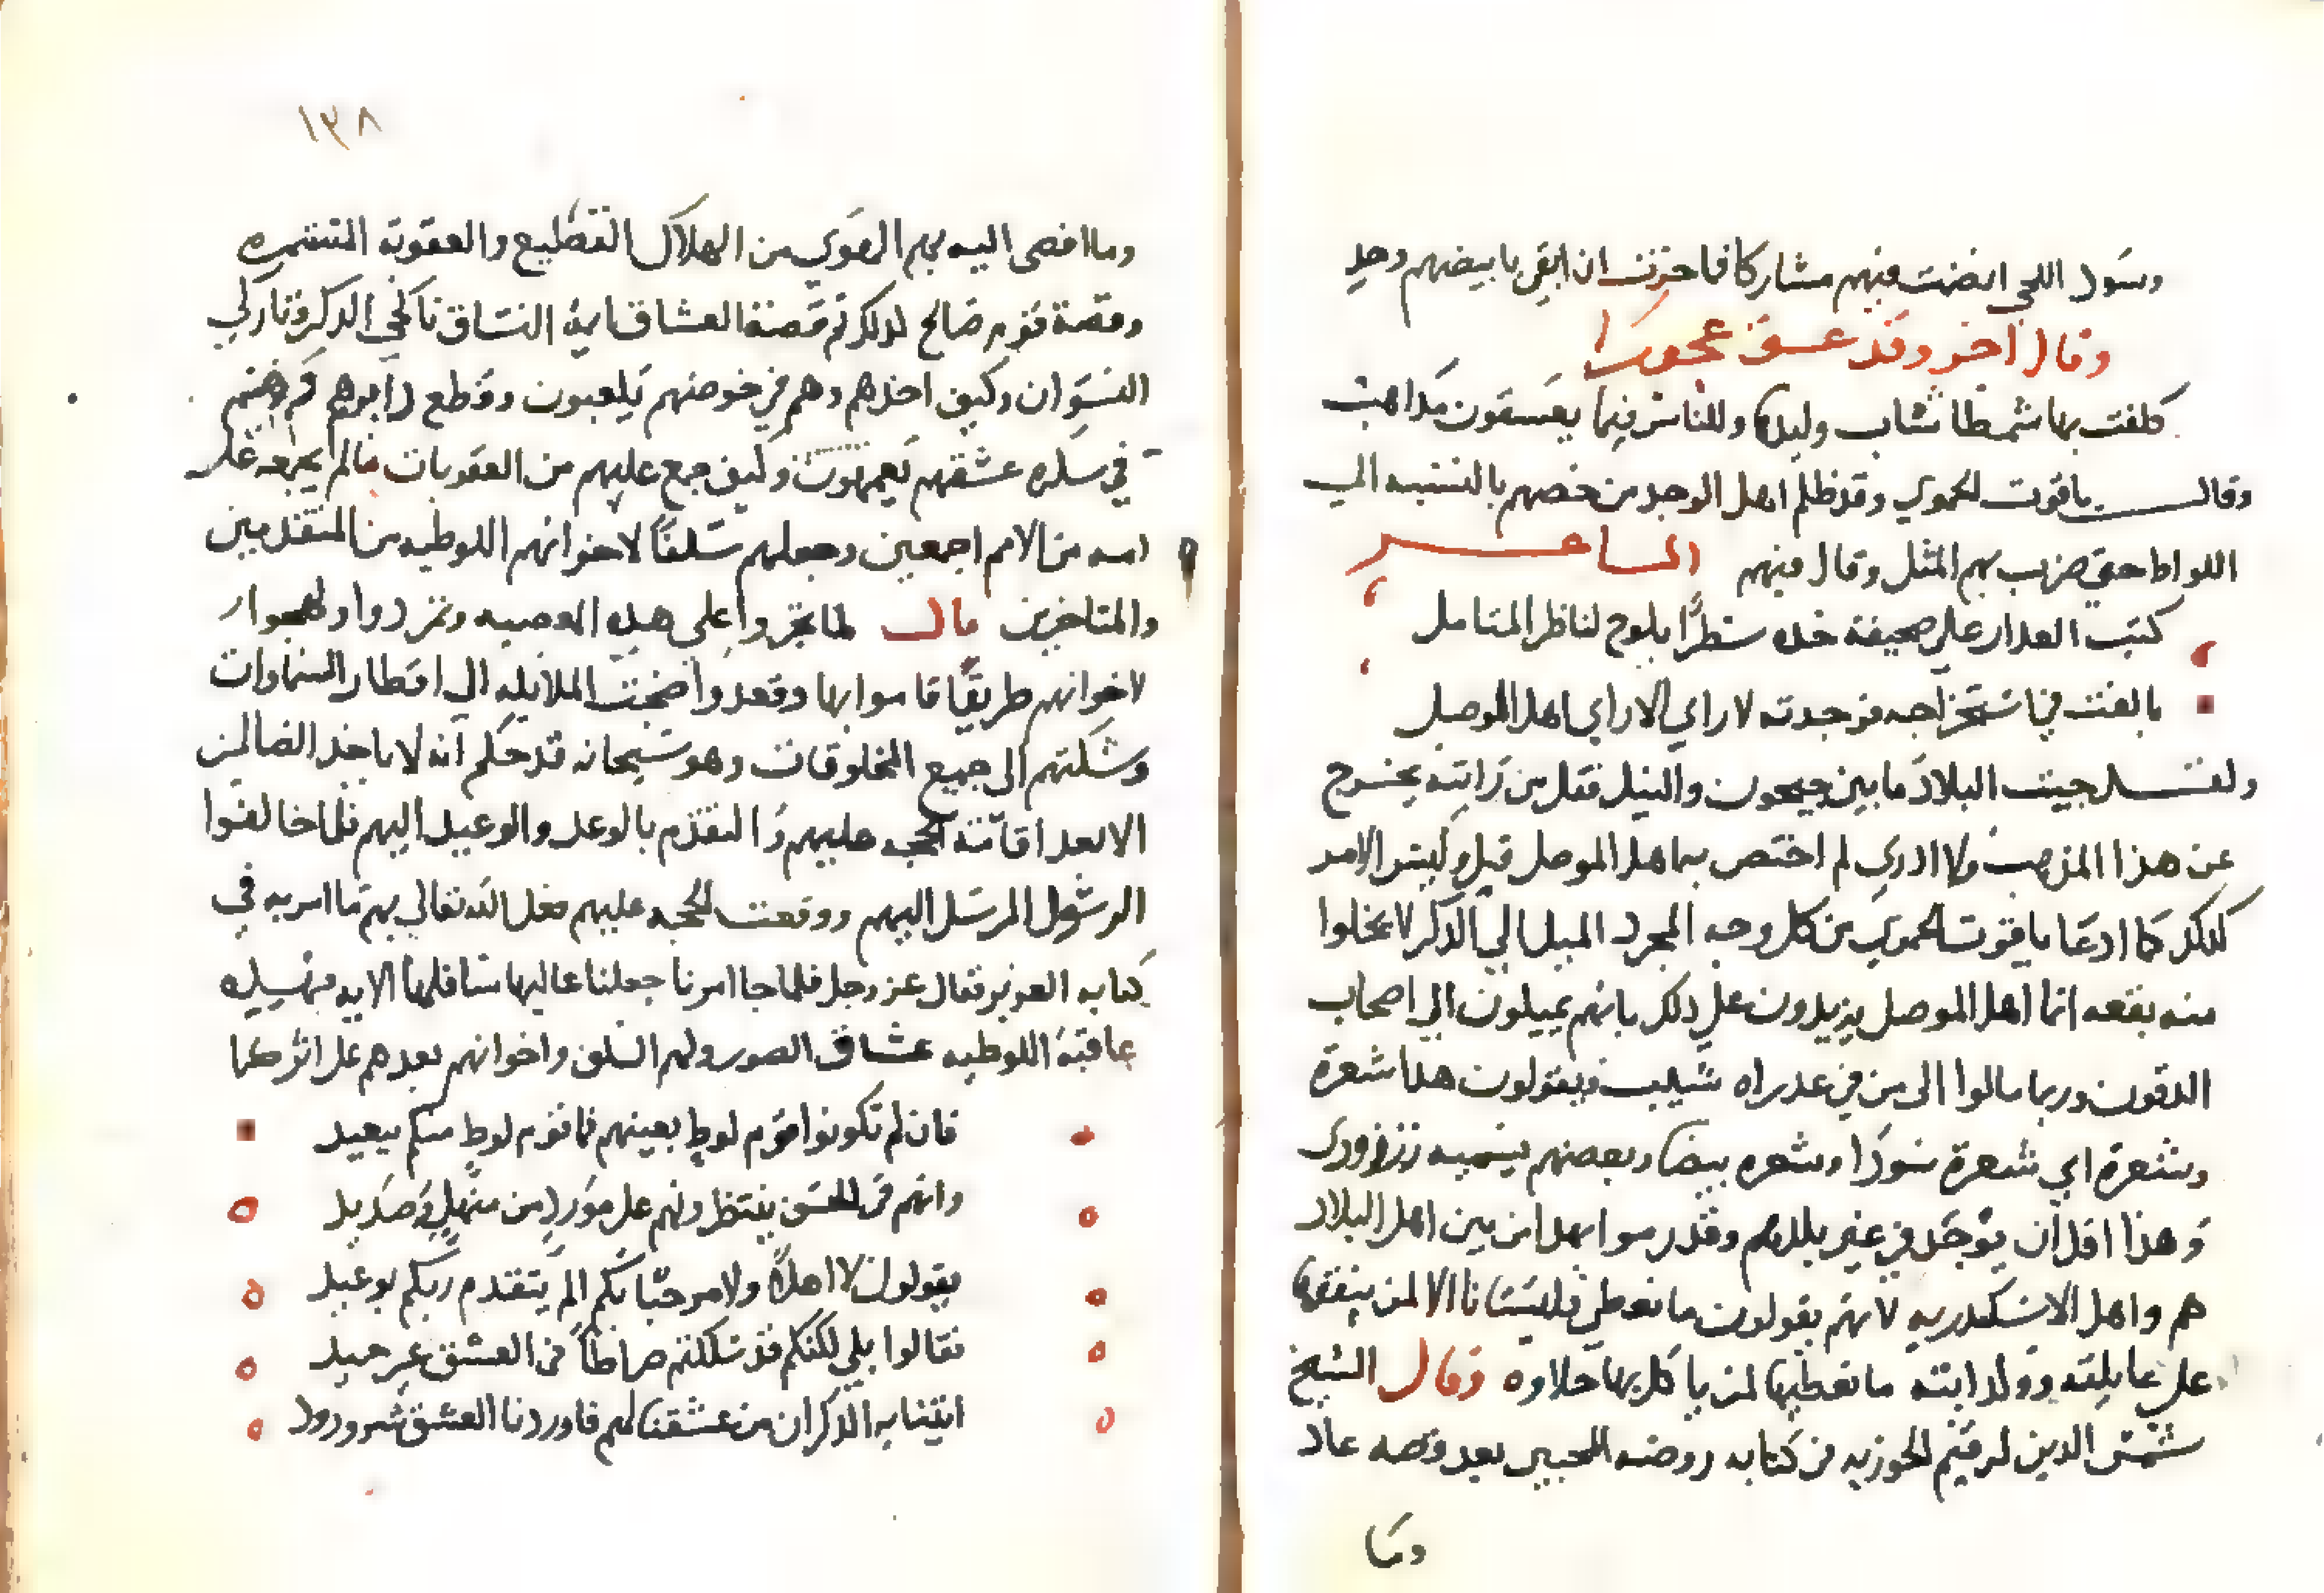 وسود اللحى ابغضت فيهم مشاركا فاحزنت ان ابقى بابيضهم وحدي
وقال اخر وقد عشق عجوزا
كلفت بها شمطا شاب وليدها وللناس فيما يعشقون مذاهب
وقال ياقوت الحموي وقد ظلم اهل الوجد من خصهم بالنسبه الى
اللواط حتى ضرب بهم المثل وقال فيهم الشاعر
كتب العدار على صحيفة خده سطرًا يلوح لناظر المتامل
بالغت في استخراجه فوجدته لا راي الا راي اهل الموصل
ولقد جيت البلاد ما بين جيحون والنيل فقل من رايته يخرج
عن هذا المذهب ولا ادري لم اختص به اهل الموصل قيل وليس الامر
كذلك كما ادعا ياقوت الحموي من كل وجه المجرد الميل الى الذكر لا يخلوا
منه بقعه انما اهل الموصل يزيدون على ذلك بانهم يميلون الى اصحاب
الدقون وربما مالوا الى من في عدراه شيب ويقولون هذا شعرة
وشعرة اي شعرة سودا وشعره بيضا وبعضهم يسميه زرزوري
وهذا اقل ان يوجد في غير بلدهم وقد رموا بهدا من بين اهل البلاد
هم واهل الاسكندريه لانهم يقولون ما نعطي فليستانا الا لمن ينفقها
على عايلته وولد ابنته ما نعطيها لمن ياكل بها حلاوه وقال الشيخ
شمس الدين ابن قيم الجوزيه في كتابه روضه المحبين بعد قصه عاد
وما
١٣٨
وما افضى اليه بهم الهوى من الهلاك الفظيع والعقوبة المستمره
وقصة قوم صالح كذلك ثم قصة العشاق ايمة الفساق ناكحي الذكر وتاركي
النسوان وكيف اخذهم وهم في خوضهم يلعبون وقطع دابرهم وهم
في سكره عشقهم يعمهون وكيف جمع عليهم من العقوبات ما لم يجمعه على
امه من الامم اجمعين وجعلهم سلفًا لاخوانهم اللوطيه من المتقدمين
والمتاخرين قال لما تجروا على هذه المعصيه وتمردوا ونهجوا
لاخوانهم طريقًا قاموا بها وقعدوا ضجت الملايكه الى اقطار السماوات
وشكتهم الى جميع المخلوقات وهو سبحانه قد حكم انه لا ياخد الظالمن
الا بعد اقامة الحجه عليهم والتقدم بالوعد والوعيد اليهم فلما خالفوا
الرسول المرسل اليهم ووقعت الحجه عليهم فعل الله تعالى بهم ما امر به في
كتابه العزيز فقال عز وجل فلما جا امرنا جعلنا عاليها سافلها الايه فهذه
عاقبة اللوطيه عشاق الصور ولهم السلف واخوانهم بعدهم على اثرهما
فان لم تكونوا قوم لوط بعينهم فما قوم لوط منكم ببعيد
وانهم في الخسف ينتظرونهم على مورد من منهل وصديد
يقولون لا اهلا ولا مرحبًا بكم الم يتقدم ربكم بوعيد
فقالوا بلى لكنكم قد سلكتم صراطًا في العشق غير حميد
اتينا به الذكران من عشقنا لهم فاوردنا العشق شر ورود